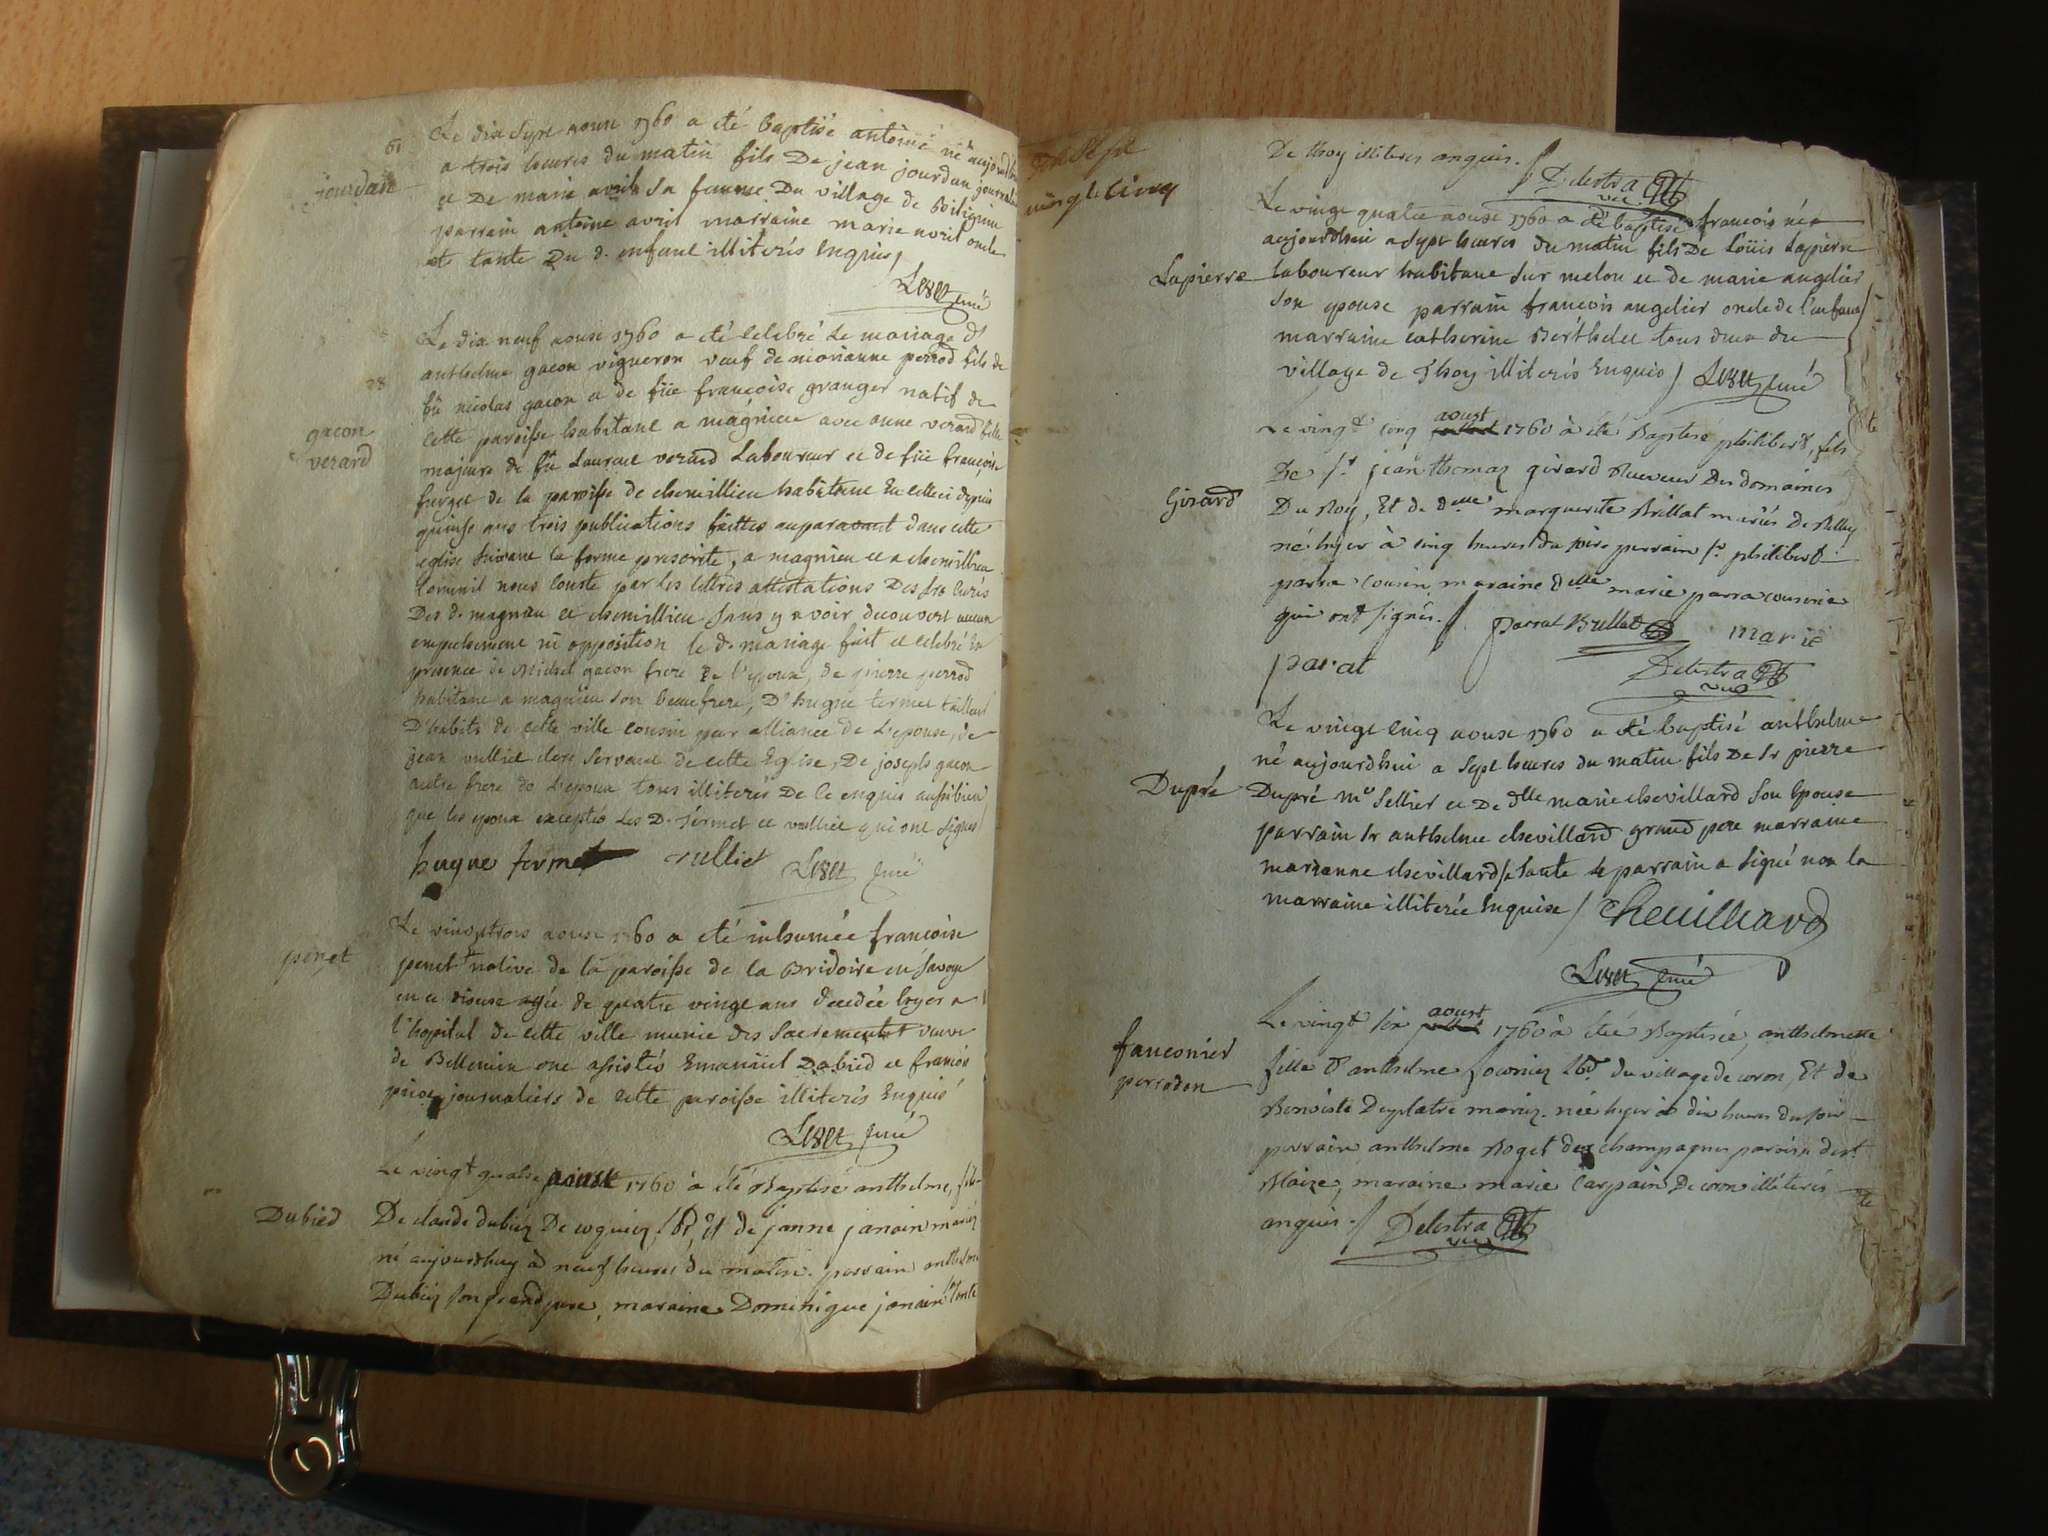 61
jourdan
Le dix sept aoust 1760 a été baptisé antoine né aujourdhui
a trois heures du matin fils De jean jourdan journalier
et De marie avril sa femme Du village de Bilignin
parrain antoine avril marraine marie avril oncle
et tante Du d. enfant illiterés Enquis/
curé
28
gacon
verard
Le dix neuf aoust 1760 a été celebré le mariage d'
anthelme gacon vigneron veuf de marianne perrod fils de
fû nicolas gacon et de füe françoise granger natif de
cette paroisse habitant a magnieu avec anne verard fille
majeure de fû Laurent verard Laboureur et de füe françoise
furget de la paroisse de chemillieu habitante En celleci depuis
quinse ans trois publications faittes auparavant dans cette
eglise suivant la forme prescrite, a magnieu et a chemillieu
comm'il nous conste par les lettres attestations Des srs Curés
Des d. magnieu et chemillieu sans y avoir decouvert aucun
empechement ni opposition le d. mariage fait et celebré en
presence de Michel gacon frere de l'epoux, de pierre perrod
habitant a magnieu son beaufrere, D'hugue termet tailleur
D'habits de cette ville cousin par alliance de L'epouse, de
jean vulliet clerc servant de cette Eglise, De joseph gacon
autre frere de L'epoux tous illiterés De ce enquis aussibien
que les epoux exceptés les D. termet et vulliet qui ont signés
hugue termet vulliet curé
penet
Le vingttrois aoust 1760 a été inhumée françoise
penet native de la paroisse de la Bridoire en Savoye
agée de quatre vingt ans decedée hyer a
l'hopital de cette ville munie des Sacrements veuve
de Bellemin ont assistés Emanüel Dubied et françois
journaliers de cette paroisse illiterés Enquis
curé
Dubied
Le vingt quatre aoust 1760 à été Baptisé anthelme, fils
De claude dubiez De coquiez, et de janne janain mariez
né aujourdhuy à neuf heures du matin. parrain anthelme
Dubiez son grand pere, maraine Dominique janain tante
vingtcinq
De thoy illiteres anquis./ Delestra vic
Lapierre
Le vingt quatre aoust 1760 a été baptisé françois né
aujourdhui a sept heures du matin fils De Loüis Lapierre
laboureur habitant sur melon et de marie angelier
son epouse parrain françois angelier oncle de l'enfant/
marraine catherine Berthelet tous deux du
village de Thoy illiterés Enquis/ curé
Girard
Le vingt cinq aoust 1760 à été Baptisé philibert, fils
De sr jean thomaz girard Receveur Des domaines
Du Roy, Et de dlle marguerite Brillat mariés De Belley
né hyer à cinq heures du soir parrain sr philibert
parra cousin maraine dlle marie parra cousine
qui ont signés./ parrat Brillat marie
parat Delestra vic
Dupré
Le vingt cinq aoust 1760 a été baptisé anthelme
né aujourdhui a sept heures du matin fils De Sr pierre
Dupré me sellier et De dlle marie chevillard son Epouse
parrain sr anthelme chevillard grand pere marraine
marianne chevillard sa tante le parrain a signé non la
marraine illiterée Enquise/ Cheuilliard
curé
fauconier
perrodon
Le vingt six aoust 1760 à été Baptisée, anthelmette
fille d'anthelme du village de coron, Et de
Benoiste Deplatre mariez. née hyer à dix heures du soir
parrain anthelme Roget des champagnes paroisse de st
Blaize, maraine marie Carpain De coron illiterés
anquis./ Delestra vic